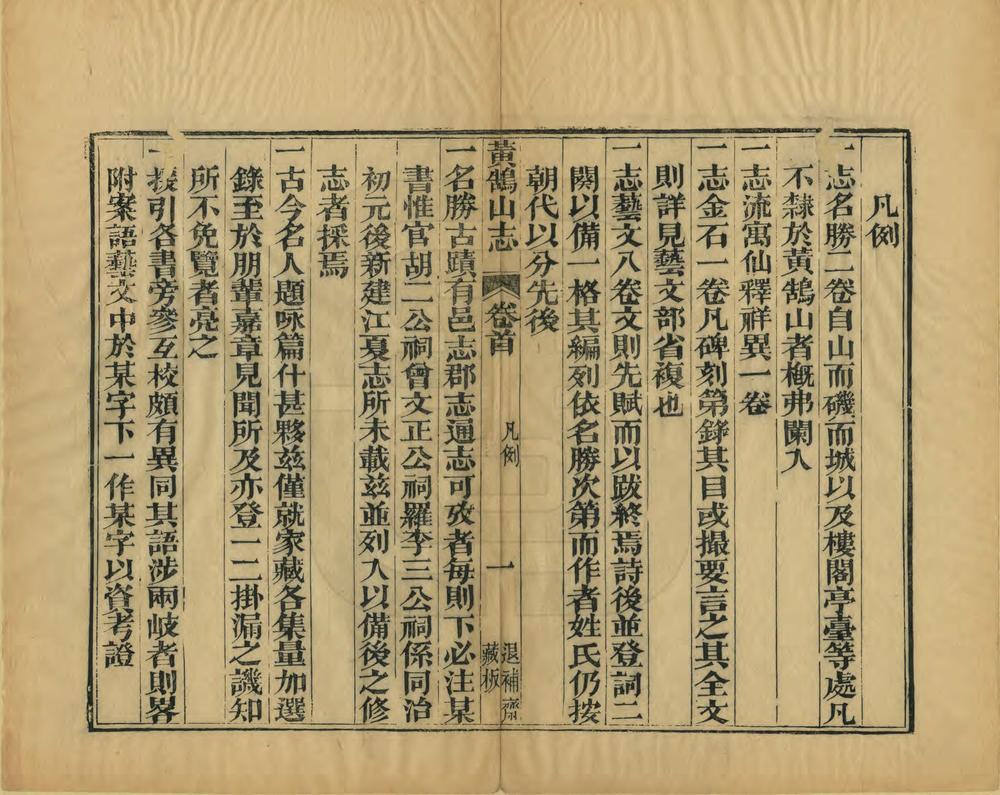 凡例
一志名勝二卷自山而磯而城以及樓閣亭臺等處凡
不隸於黃鵠山者槪弗闌入
一志流寓仙釋祥異一卷
一志金石一卷凡碑刻第錄其目或撮要言之其全文
則詳見藝文部省複也
一志藝文八卷文則先賦而以跋終焉詩後並登詞二
闋以備一格其編列依名勝次第而作者姓氏仍按
朝代以分先後
黃鵠山志 卷首 凡例 一 退補齋藏板
一名勝古蹟有邑志郡志通志可攷者每則下必注某
書惟官胡二公祠曾文正公祠羅李三公祠係同治
初元後新建江夏志所未載茲並列入以備後之修
志者採焉
一古今名人題咏篇什甚夥茲僅就家藏各集量加選
錄至於朋輩嘉章見聞所及亦登一二掛漏之譏知
所不免覽者亮之
一援引各書旁參互校頗有異同其語涉兩岐者則畧
附案語藝文中於某字下一作某字以資考證